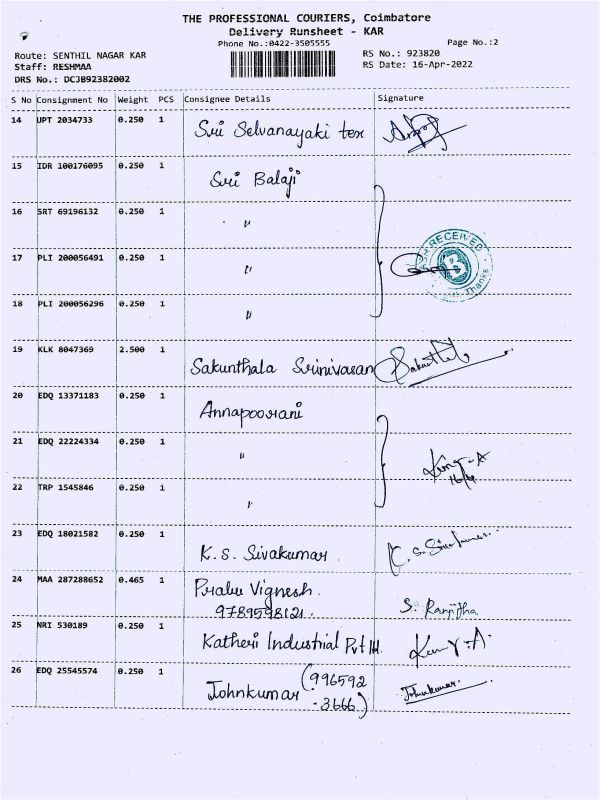 THE PROFESSIONAL COURIERS, Coimbatore
Delivery Runsheet - KAR
Phone No.:0422-3505555
Page No.:2
Route: SENTHIL NAGAR KAR
RS No.: 923820
Staff: RESHMAA
RS Date: 16-Apr-2022
DRS No.: DCJB92382002
S No Consignment No Weight PCS Consignee Details Signature
14 UPT 2034733 0.250 1 Sri Selvanayaki tex
15 IDR 100176095 0.250 1 Sri Balaji
16 SRT 69196132 0.250 1 "
17 PLI 200056491 0.250 1 "
RECEIVED
B
Thanks
18 PLI 200056296 0.250 1 "
19 KLK 8047369 2.500 1 Sakunthala Srinivasan
20 EDQ 13371183 0.250 1 Annapoorani
21 EDQ 22224334 0.250 1 "
16/4
22 TRP 1545846 0.250 1 "
23 EDQ 18021582 0.250 1 K.S. Sivakumar K.S. Sivakumar
24 MAA 287288652 0.465 1 Prabu Vignesh.
9789598121. S. Ranjitha
25 NRI 530189 0.250 1 Katheri Industrial Pvt ltd.
26 EDQ 25545574 0.250 1 Johnkumar (996592 Johnkumar.
-3666)